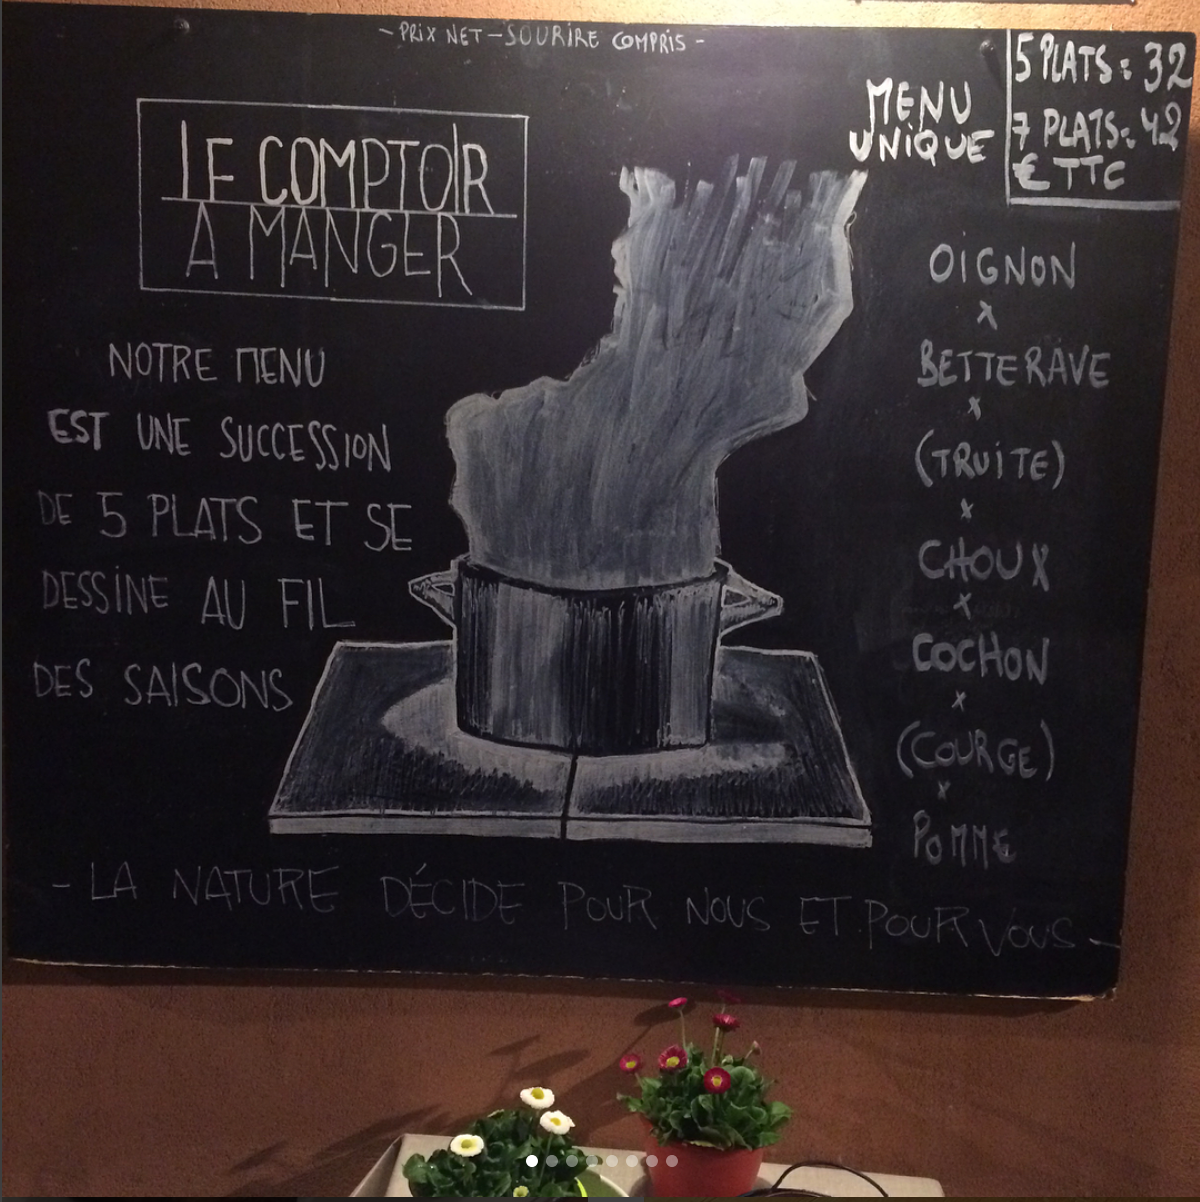 ~ PRIX NET - SOURIRE COMPRIS -
LE COMPTOIR
A MANGER
NOTRE MENU
EST UNE SUCCESSION
DE 5 PLATS ET SE
DESSINE AU FIL
DES SAISONS
MENU
UNIQUE
5 PLATS: 32
7 PLATS: 42
€ TTC
OIGNON
x
BETTERAVE
x
(TRUITE)
x
CHOUX
x
COCHON
x
(COURGE)
x
POMME
- LA NATURE DÉCIDE POUR NOUS ET POUR VOUS -